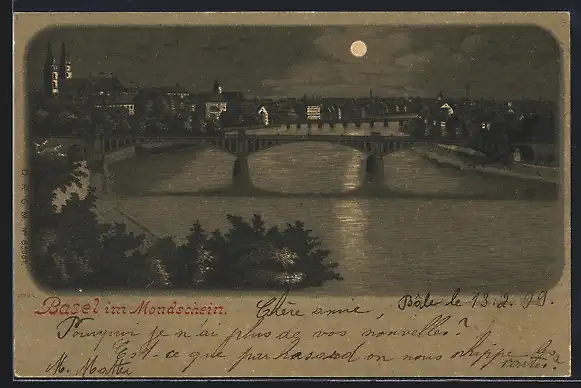 Basel im Mondschein.
Chère amie, Bâle le 13.2.99.
Pourquoi je n'ai plus de vos nouvelles?
Est-ce que par hasard on nous chippe nos
cartes?
M.
D. R. G. M. №